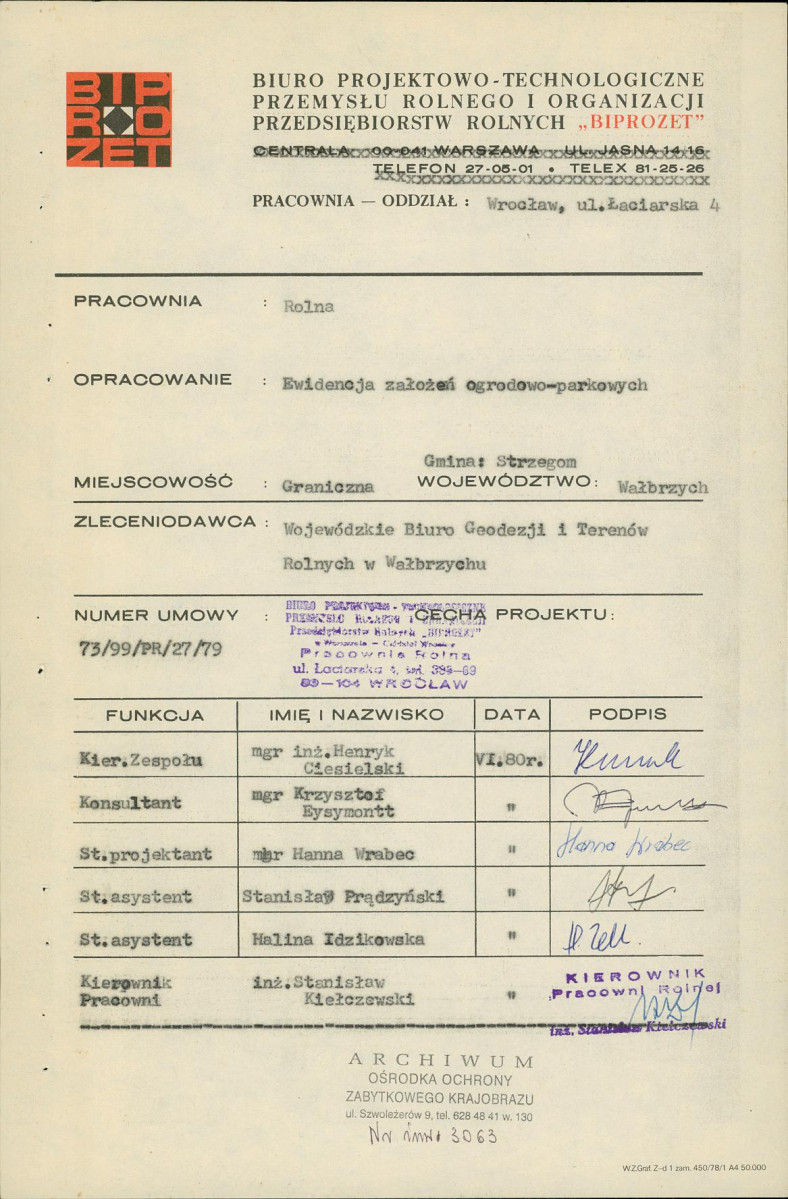 BIP
RO
ZET
BIURO PROJEKTOWO-TECHNOLOGICZNE
PRZEMYSŁU ROLNEGO I ORGANIZACJI
PRZEDSIĘBIORSTW ROLNYCH „BIPROZET”
CENTRALA 00-041 WARSZAWA UL. JASNA 14/16
TELEFON 27-05-01 • TELEX 81-25-26
PRACOWNIA — ODDZIAŁ : Wrocław, ul.Łaciarska 4
PRACOWNIA : Rolna
OPRACOWANIE : Ewidencja założeń ogrodowo-parkowych
Gmina: Strzegom
MIEJSCOWOŚĆ : Graniczna WOJEWÓDZTWO: Wałbrzych
ZLECENIODAWCA : Wojewódzkie Biuro Geodezji i Terenów
Rolnych w Wałbrzychu
NUMER UMOWY : CECHA PROJEKTU:
73/99/PR/27/79
BIURO PROJEKTOWO - TECHNOLOGICZNE
PRZEMYSŁU ROLNEGO I ORGANIZACJI
Przedsiębiorstw Rolnych „BIPROZET”
w Warszawie - Oddział Wrocław
Pracownia Rolna
ul. Łaciarska 4, tel.
50-104 WROCŁAW
FUNKCJA IMIĘ I NAZWISKO DATA PODPIS
Kier.Zespołu mgr inż.Henryk
Ciesielski VI.80r.
Konsultant mgr Krzysztof
Eysymontt "
St.projektant mgr Hanna Wrabec " Hanna Wrabec
St.asystent Stanisław Prądzyński "
St.asystent Halina Idzikowska "
Kierownik
Pracowni inż.Stanisław
Kiełczewski "
KIEROWNIK
Pracowni Rolnej
inż. Stanisław Kiełczewski
ARCHIWUM
OŚRODKA OCHRONY
ZABYTKOWEGO KRAJOBRAZU
ul. Szwoleżerów 9, tel. 628 48 41 w. 130
Nr inw. 3063
W.Z.Graf. Z-d 1 zam. 450/78/1 A4 50.000